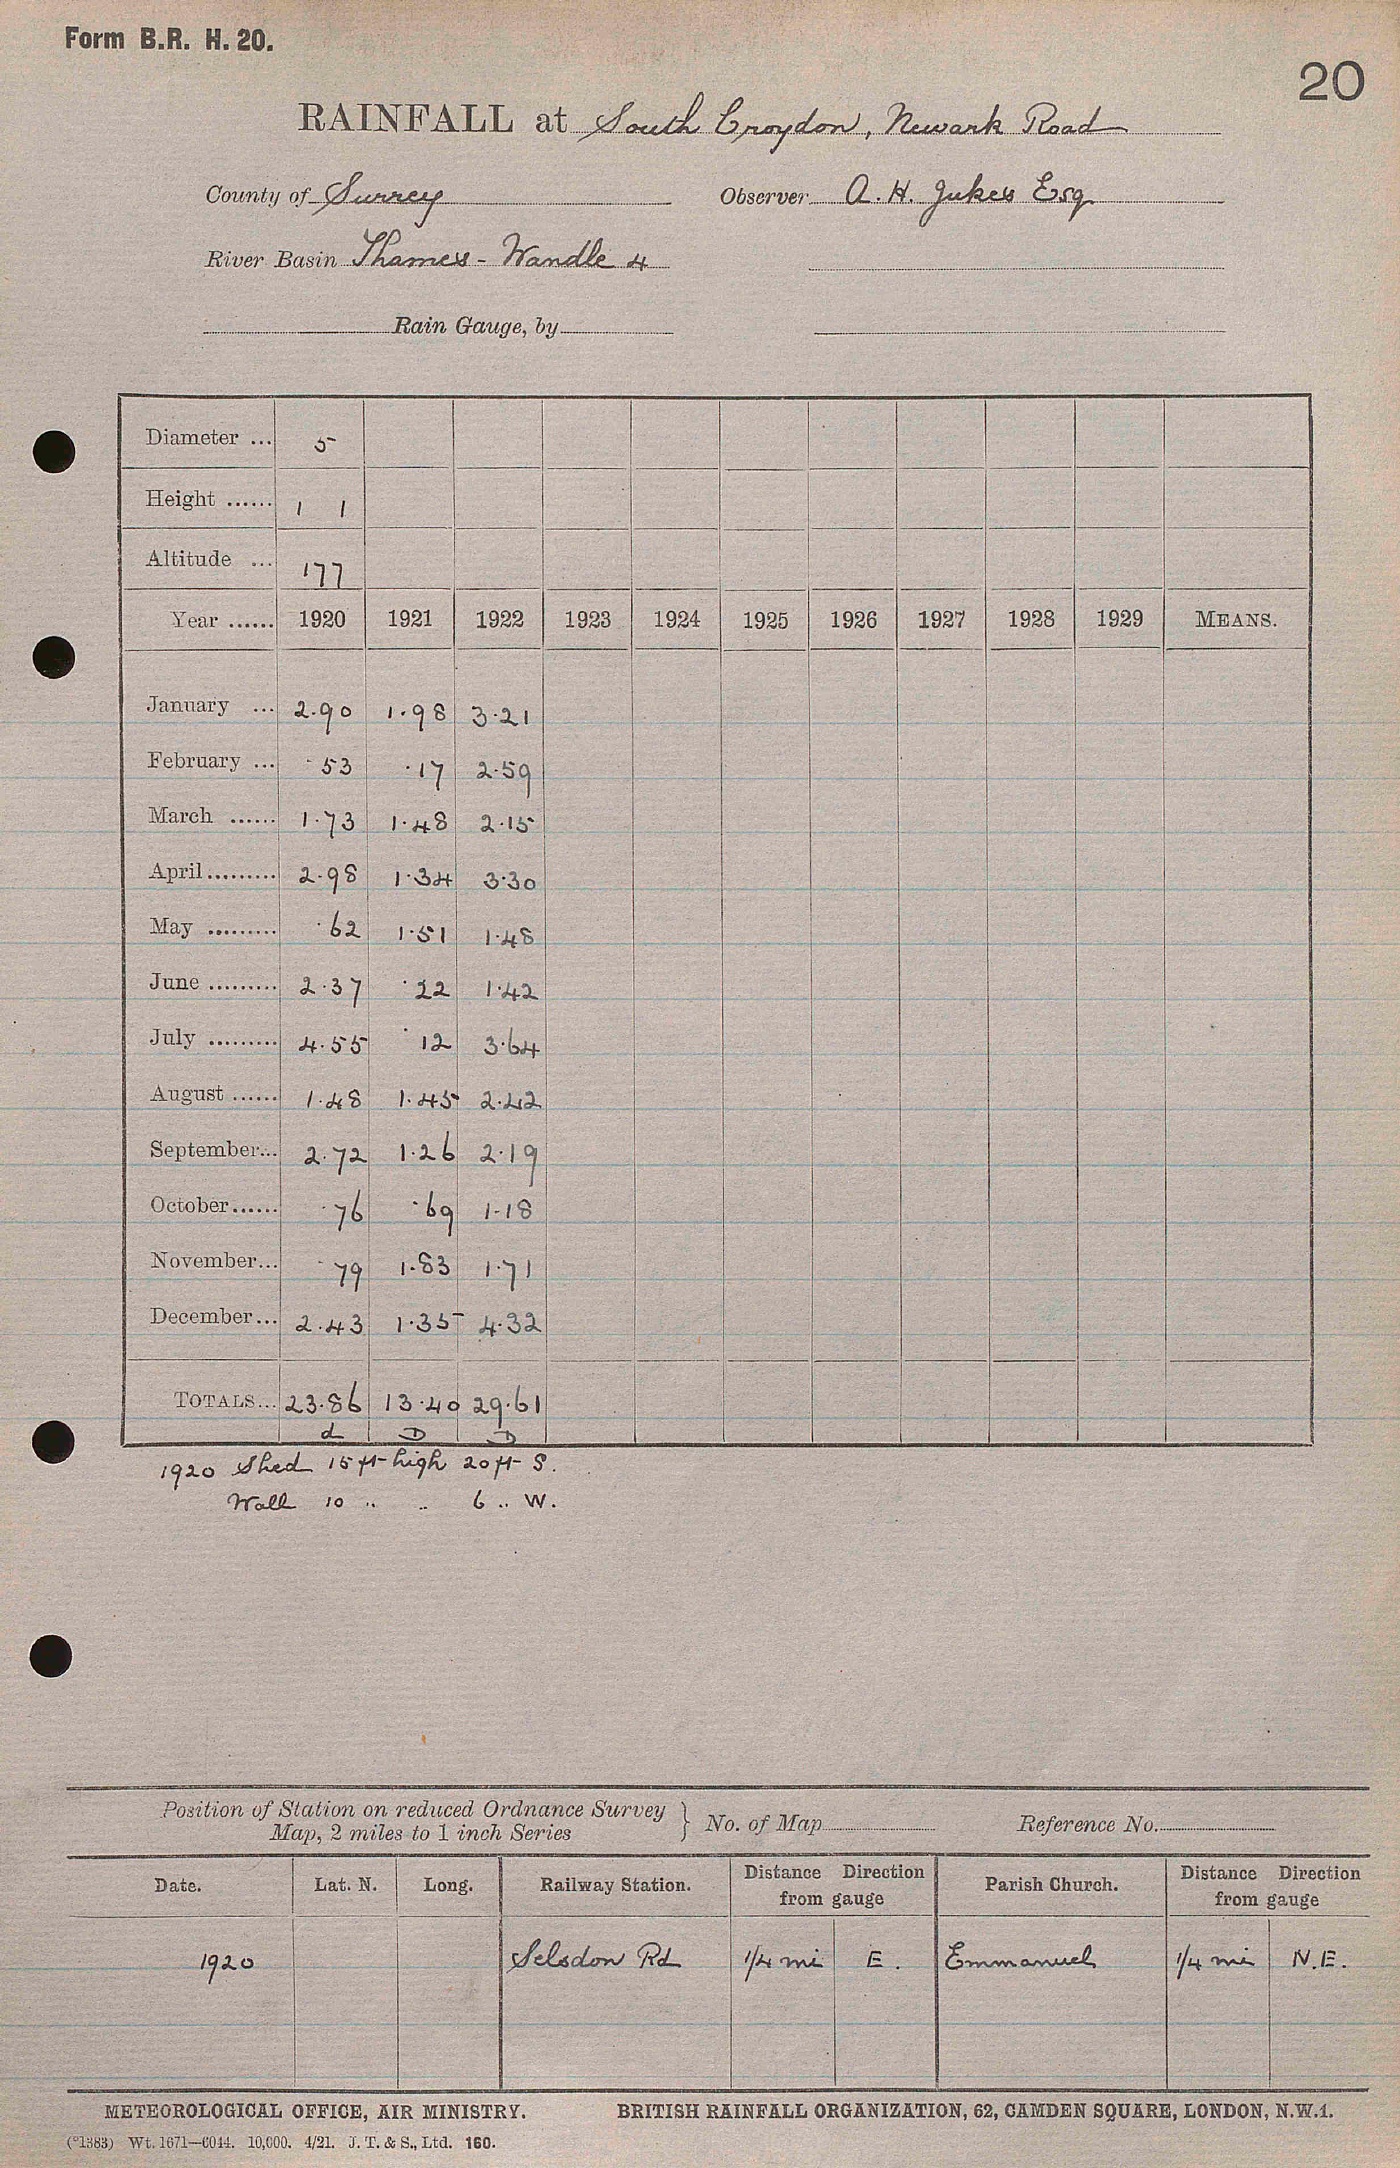 Form B.R. H. 20.
20
RAINFALL at South Croydon, Newark Road
County of Surrey Observer A. H. Jukes Esq
River Basin Thames - Wandle 4
Rain Gauge, by
Diameter ... 5
Height ...... 1 1
Altitude ... 177
Year ...... 1920 1921 1922 1923 1924 1925 1926 1927 1928 1929 MEANS.
January ... 2.90 1.98 3.21
February ... .53 .17 2.59
March ...... 1.73 1.48 2.15
April ......... 2.98 1.34 3.30
May ......... .62 1.51 1.48
June ......... 2.37 .22 1.42
July ......... 4.55 .12 3.64
August ...... 1.48 1.45 2.42
September... 2.72 1.26 2.19
October...... .76 .69 1.18
November... .79 1.83 1.71
December... 2.43 1.35 4.32
TOTALS... 23.86 13.40 29.61
d D D
1920 Shed 15 ft high 20 ft S.
Wall 10 " " 6 " W.
Position of Station on reduced Ordnance Survey
Map, 2 miles to 1 inch Series } No. of Map Reference No.
Date. Lat. N. Long. Railway Station. Distance Direction from gauge Parish Church. Distance Direction from gauge
1920 Selsdon Rd 1/4 mi E. Emmanuel 1/4 mi N.E.
METEOROLOGICAL OFFICE, AIR MINISTRY. BRITISH RAINFALL ORGANIZATION, 62, CAMDEN SQUARE, LONDON, N.W.1.
(*1383) Wt. 1671—6044. 10,000. 4/21. J. T. & S., Ltd. 160.